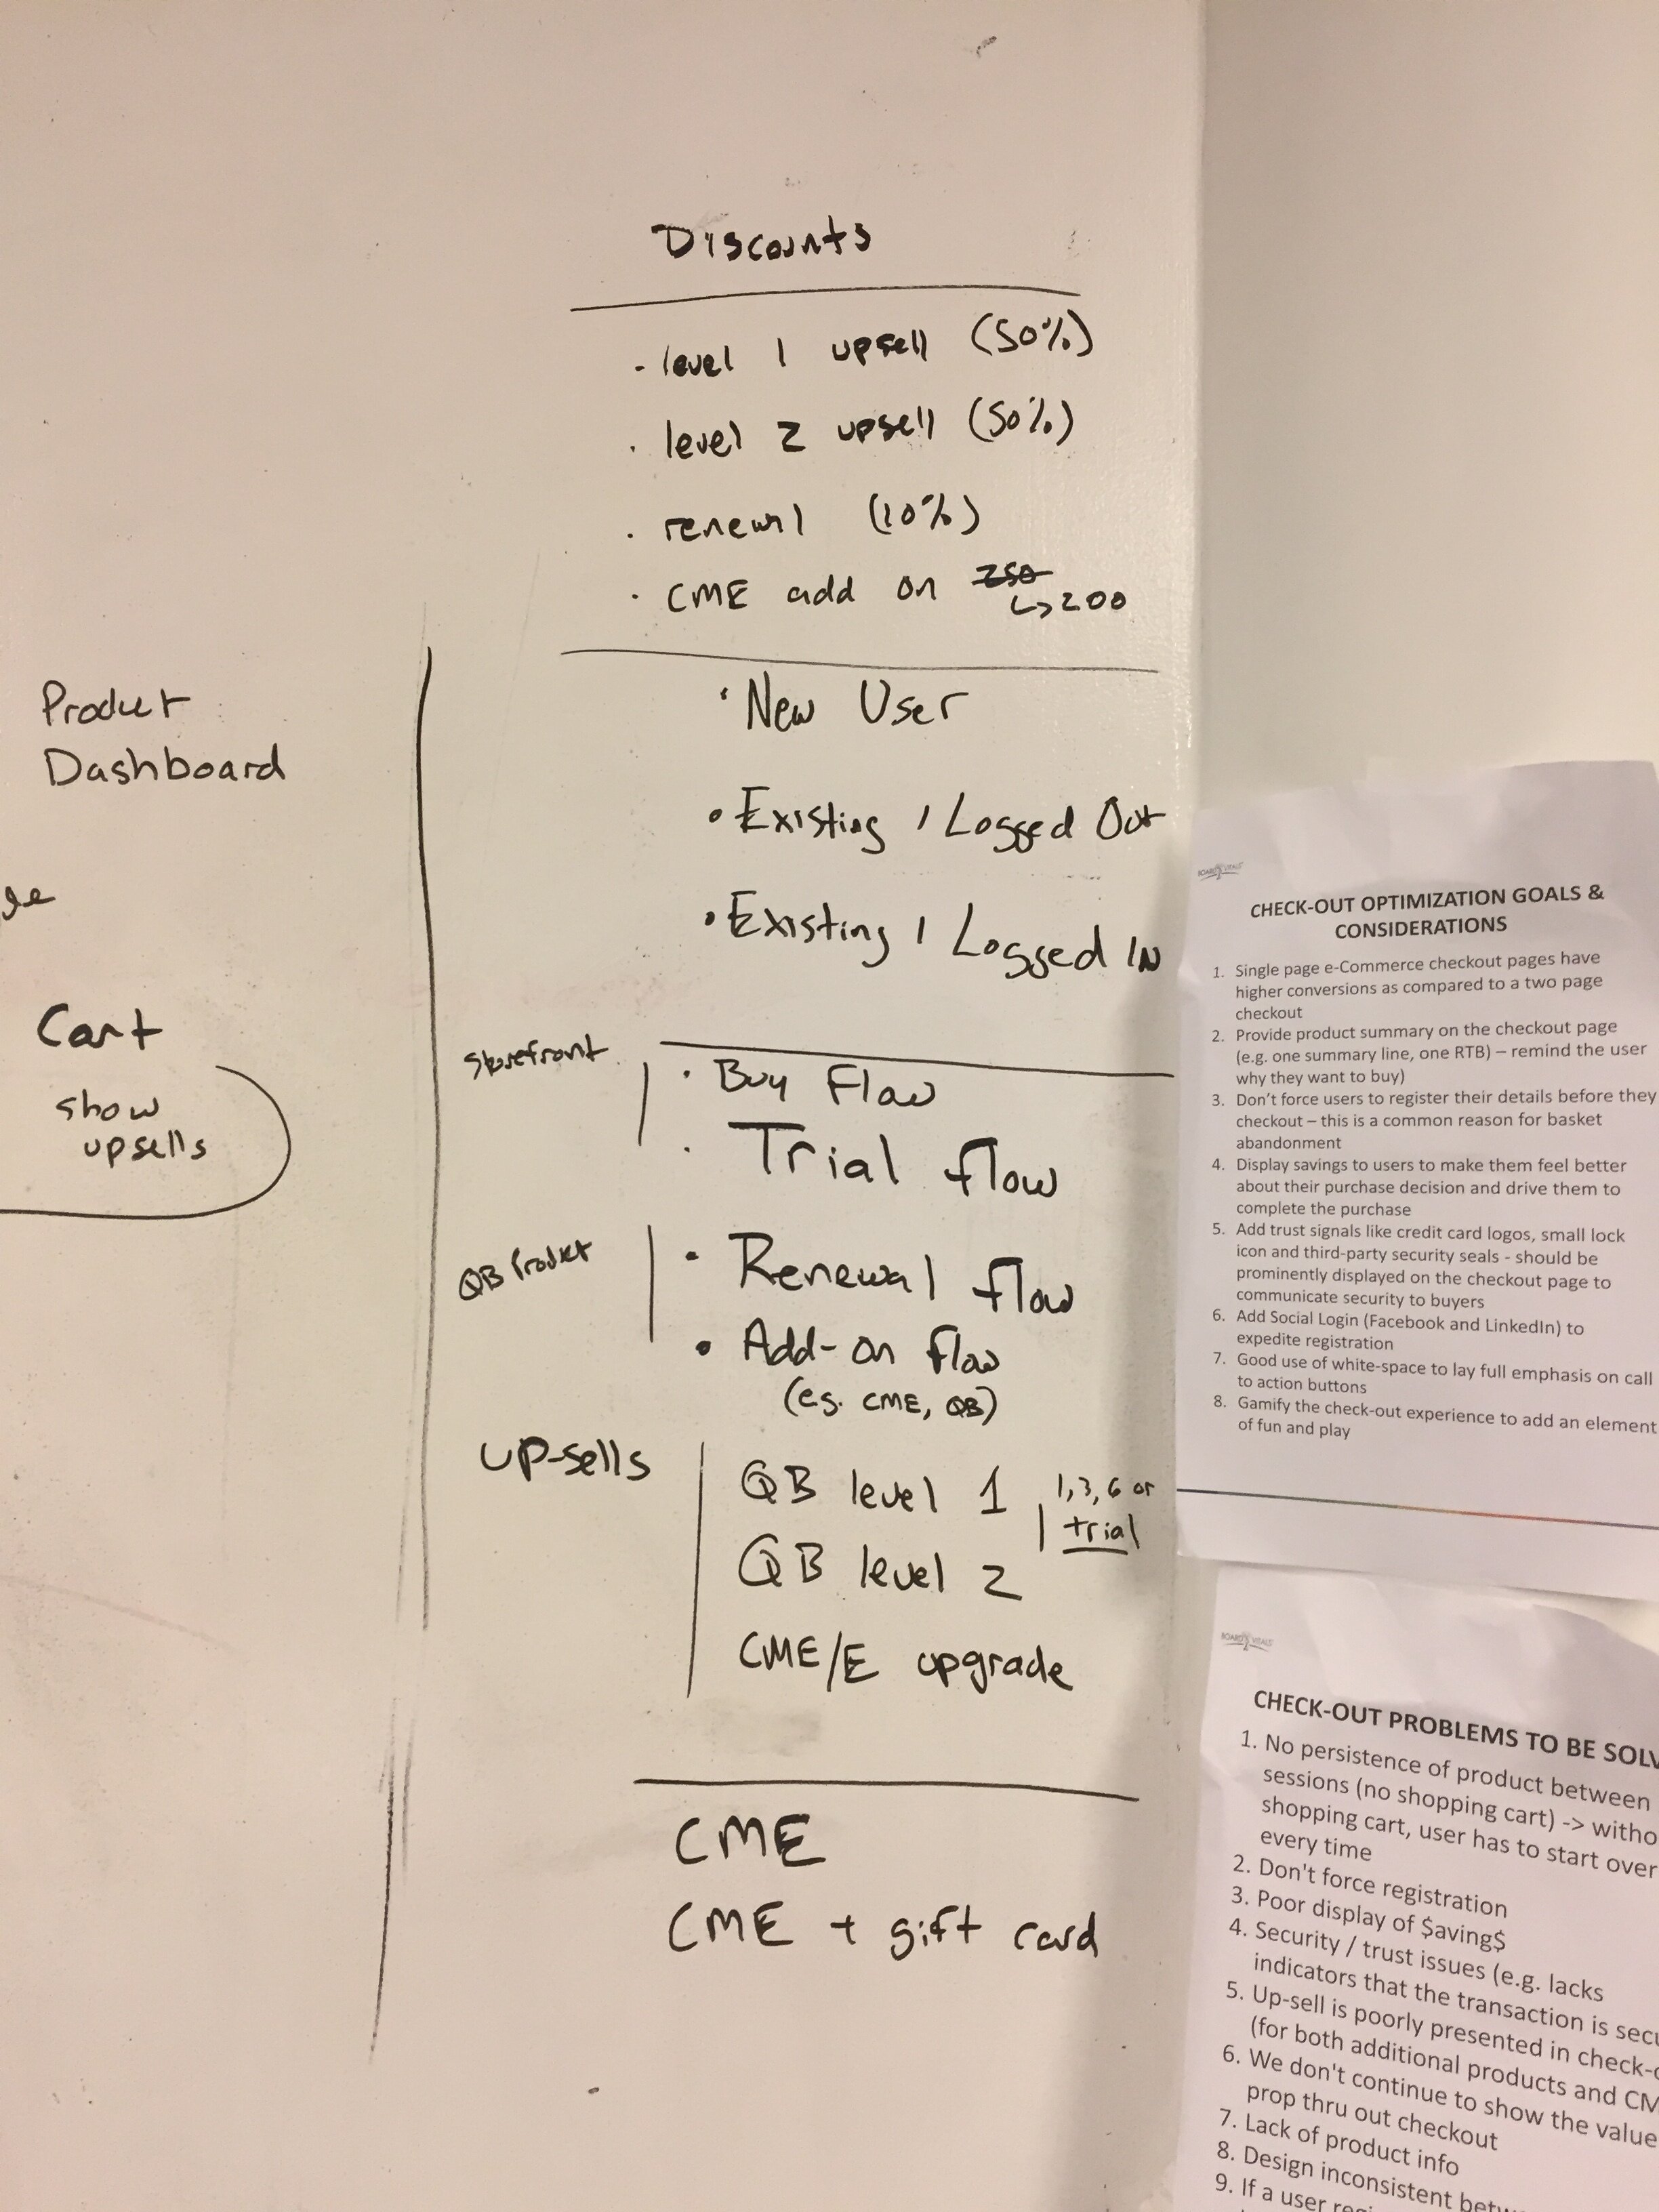 Discounts
· level 1 upsell (50%)
· level 2 upsell (50%)
· renewal (10%)
· CME add on 250
↳ 200
· New User
• Existing / Logged Out
• Existing / Logged IN
Product
Dashboard
Cart
show
upsells
storefront
· Buy Flow
· Trial flow
QB Product
• Renewal flow
• Add-on flow
(eg. CME, QB)
UP-sells
QB level 1
1, 3, 6 or
trial
QB level 2
CME/E upgrade
CME
CME + gift card
BOARD VITALS
CHECK-OUT OPTIMIZATION GOALS &
CONSIDERATIONS
1. Single page e-Commerce checkout pages have
higher conversions as compared to a two page
checkout
2. Provide product summary on the checkout page
(e.g. one summary line, one RTB) – remind the user
why they want to buy)
3. Don't force users to register their details before they
checkout – this is a common reason for basket
abandonment
4. Display savings to users to make them feel better
about their purchase decision and drive them to
complete the purchase
5. Add trust signals like credit card logos, small lock
icon and third-party security seals - should be
prominently displayed on the checkout page to
communicate security to buyers
6. Add Social Login (Facebook and LinkedIn) to
expedite registration
7. Good use of white-space to lay full emphasis on call
to action buttons
8. Gamify the check-out experience to add an element
of fun and play
BOARD VITALS
CHECK-OUT PROBLEMS TO BE SOLV
1. No persistence of product between
sessions (no shopping cart) -> witho
shopping cart, user has to start over
every time
2. Don't force registration
3. Poor display of $aving$
4. Security / trust issues (e.g. lacks
indicators that the transaction is secu
5. Up-sell is poorly presented in check-o
(for both additional products and CM
6. We don't continue to show the value
prop thru out checkout
7. Lack of product info
8. Design inconsistent betw
9. If a user regi